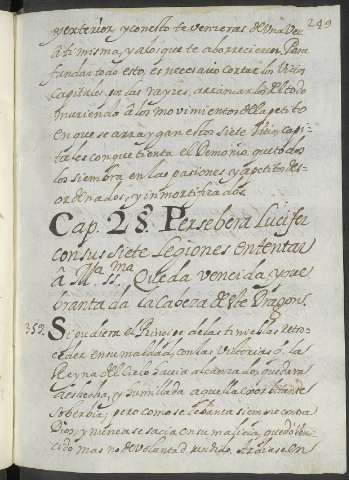 249
y exterior, y con esto te venzeras de una vez
a ti misma, y a los que te aborrecieren. Para
fundar todo esto, es necesario cortar los Vicios
Capitales por las rayzes, arrancarlos del todo
muriendo a los movimientos del apetito
en que se arraygan estos siete Vicios capi-
tales con que tienta el Demonio, que todos
los siembra en las pasiones y apetitos des-
ordenados, y inmortificados.
Cap. 28. Persebera Lucifer
con sus siete Legiones en tentar
â M.ª SS.ma Queda vencida, y que
brantada la Cabeza de este Dragon.
359. Si pudiera el Principe de las tinieblas retro-
ceder en su maldad, con las Victorias q. la
Reyna del Cielo havia alcanzado, quedara
deshecha, y humillada aquella exorbitante
Soberbia; pero como se lebanta siempre contra
Dios, y nunca se sacia en su malicia, quedò ven-
cido mas no de voluntad rendido.